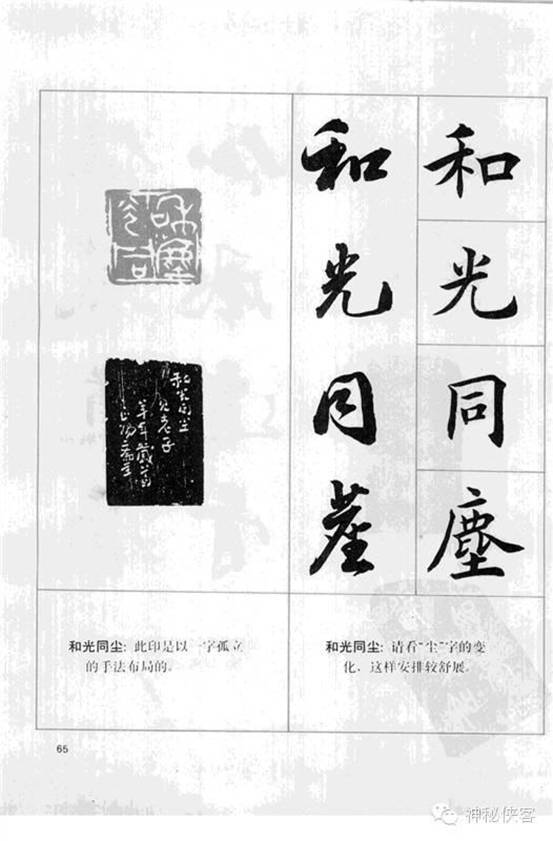 和光同塵
和光同塵
和塵
光同
和光同尘
见老子
和光同尘: 请看“尘”字的变
化, 这样安排较舒展。
和光同尘: 此印是以一字孤立
的手法布局的。
65
神秘侠客